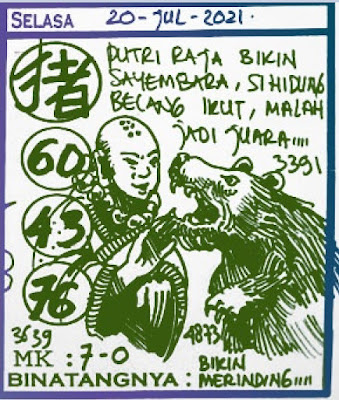 SELASA 20-JUL-2021.
猪 PUTRI RAJA BIKIN
SAYEMBARA, SI HIDUNG
BELANG IKUT, MALAH
JADI JUARA....
3391
60
43
76
3639
4873
MK : 7-0
BINATANGNYA : BIKIN
MERINDING!!!!